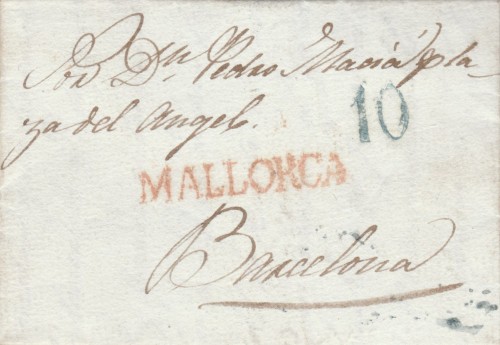 Sor Dn. Pedro Maciá pla-
za del Angel.
10
MALLORCA
Barcelona